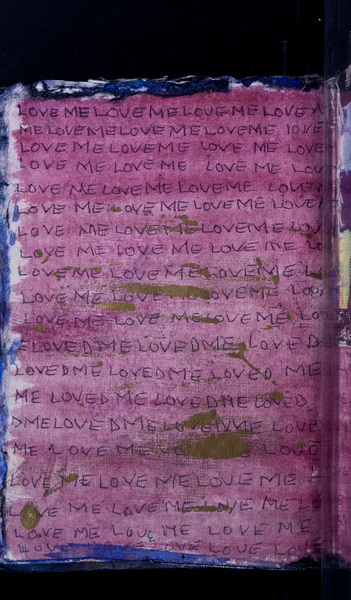 LOVE ME LOVE ME LOVE ME LOVE
ME LOVE ME LOVE ME LOVE ME LOVE
LOVE ME LOVE ME LOVE ME LOVE
LOVE ME LOVE ME LOVE ME LO
LOVE ME LOVE ME LOVE ME LOVE
LOVE ME LOVE ME LOVE ME LOVE
LOVE ME LOVE ME LOVE ME LOV
LOVE ME LOVE ME LOVE ME LO
LOVE ME LOVE ME LOVE ME L
LOVE ME LOVE ME LOVE ME LOV
LOVE ME LOVE ME LOVE ME LO
ELOVED ME LOVED ME LOVE
LOVED ME LOVED ME LOVED ME
ME LOVED ME LOVED ME LOVED
DME LOVE DME LOVE ME LOVE
ME LOVE ME LOVE LOVE
LOVE ME LOVE ME LOVE ME LOVE
LOVE ME LOVE ME LOVE ME LO
LOVE ME LOVE ME LOVE ME
LOVE LOVE LOVE